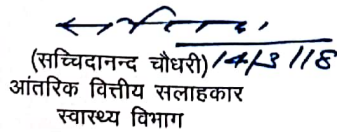 (सच्चिदानन्द चौधरी) 14/3/18
आंतरिक वित्तीय सलाहकार
स्वास्थ्य विभाग